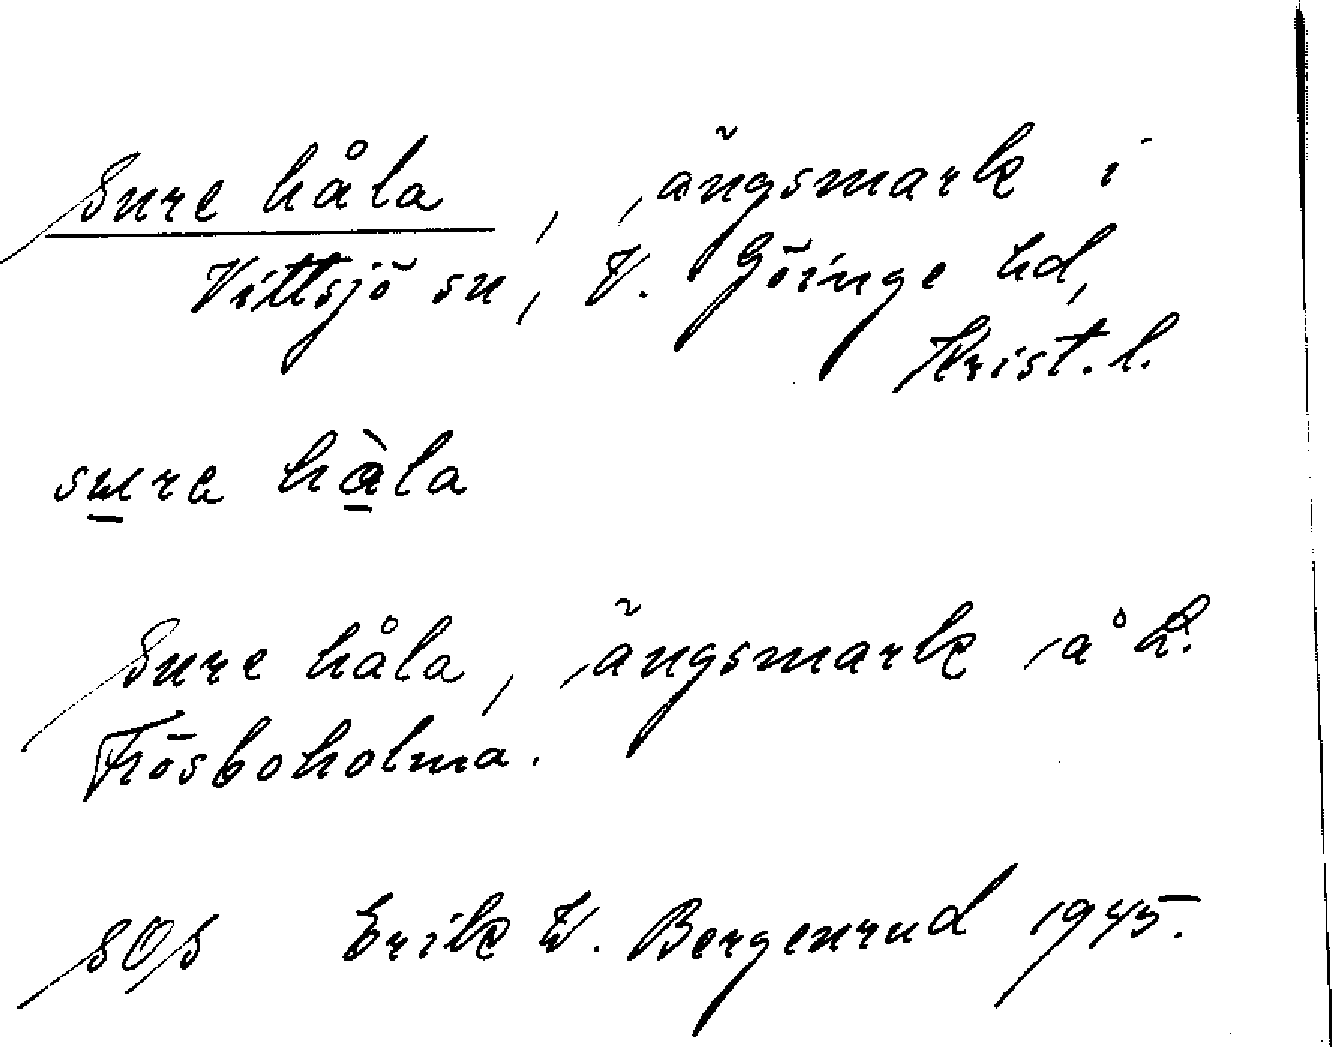 Sure håla, ängsmark i
Vittsjö sn, V. Göinge hd,
Krist. l.
sura hàla
Sure håla, ängsmark å L.
Frösboholma.
SOS Erik W. Bergenrud 1945.